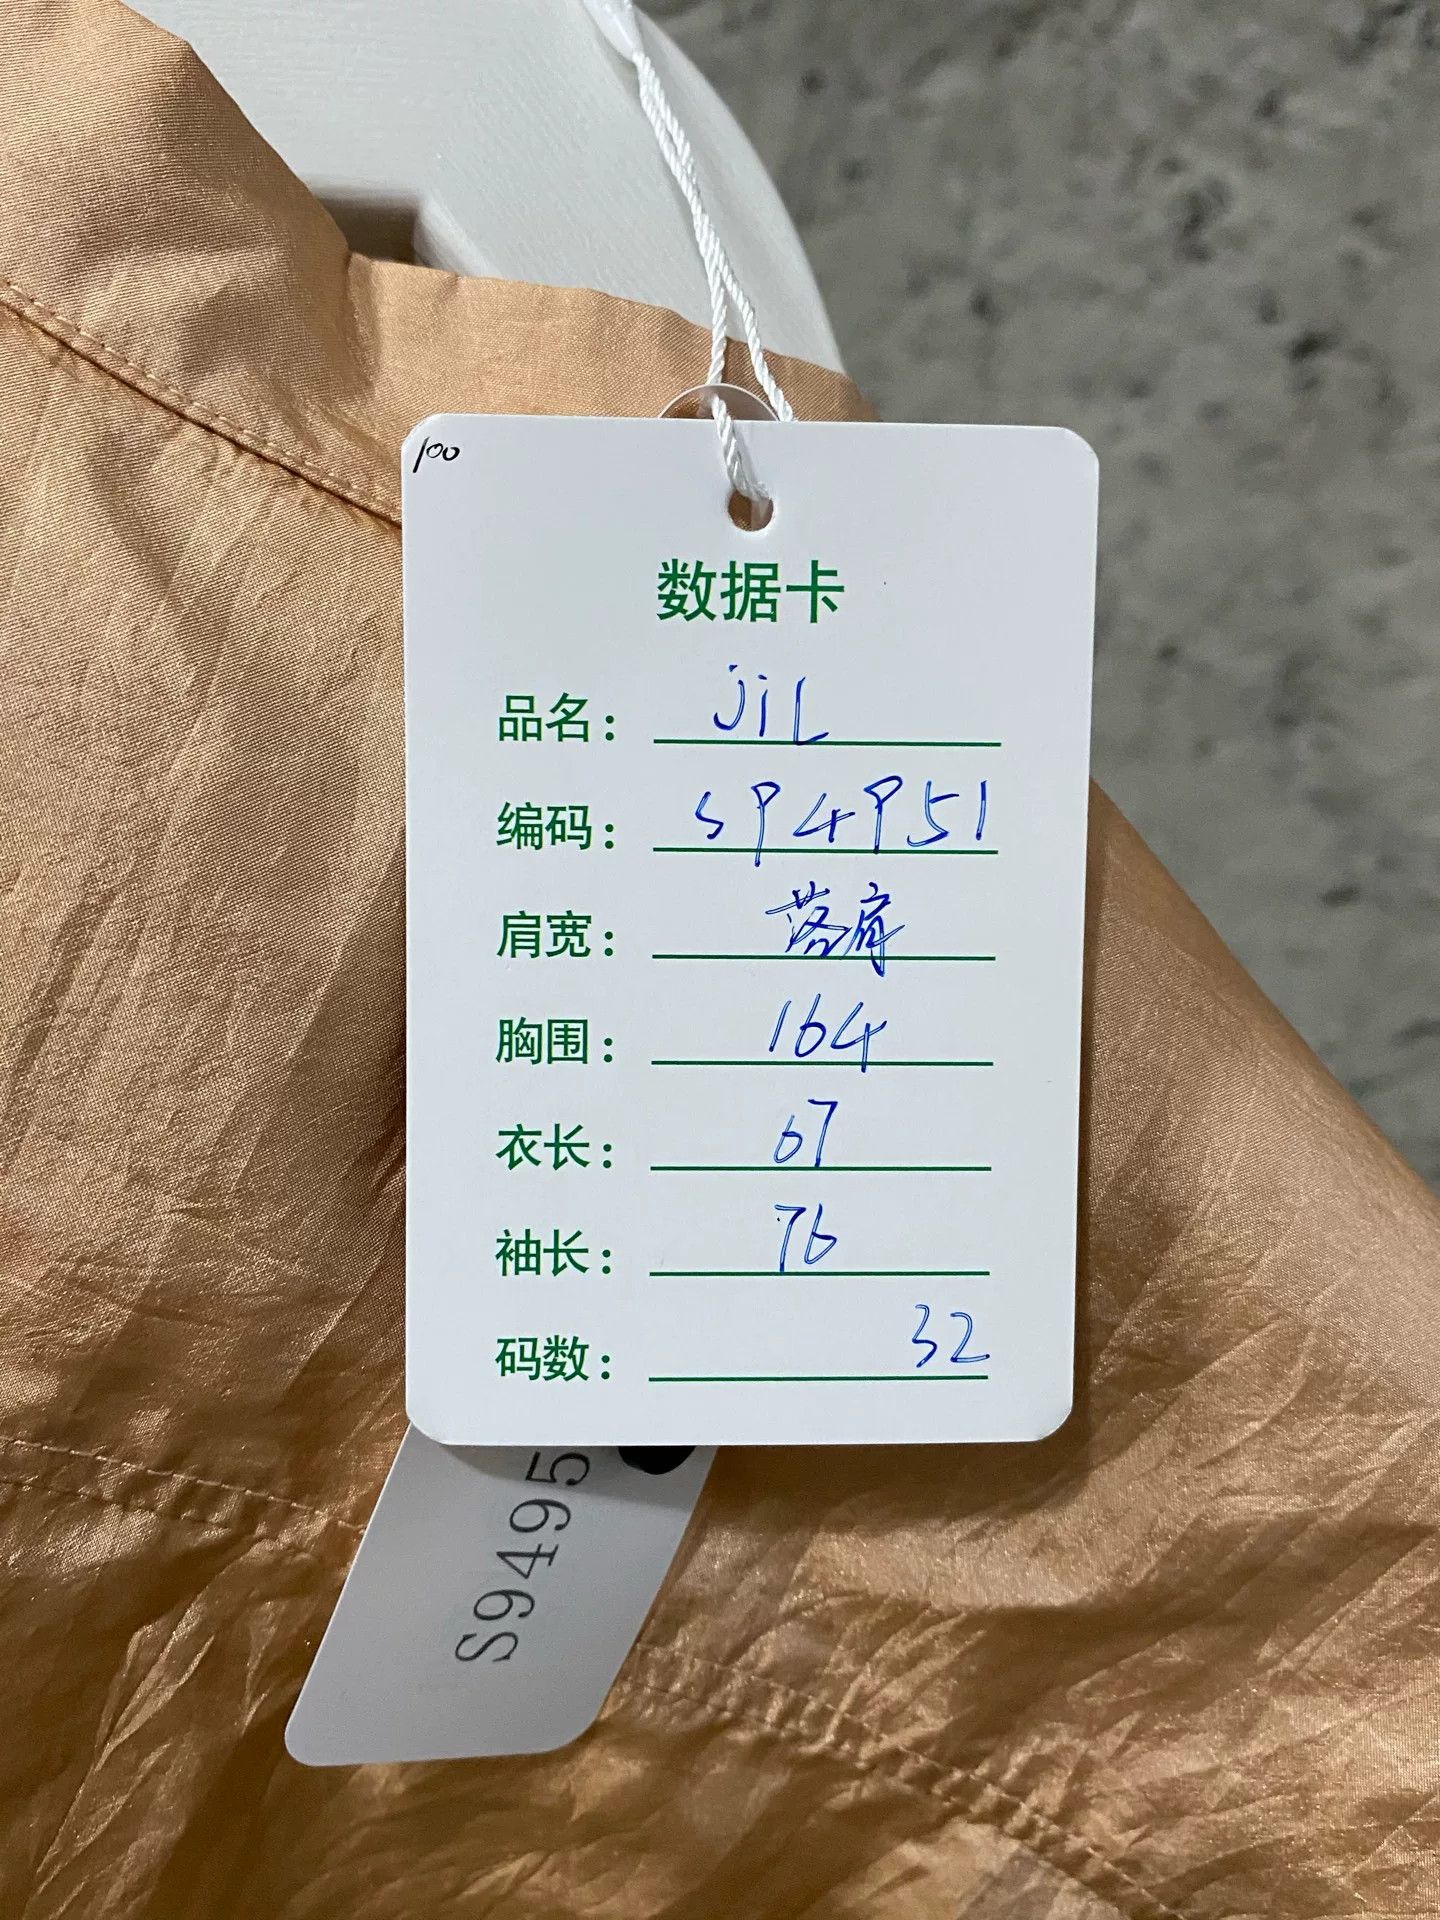 100
数据卡
品名: jil
编码: S94951
肩宽: 落肩
胸围: 164
衣长: 67
袖长: 76
码数: 32
S9495